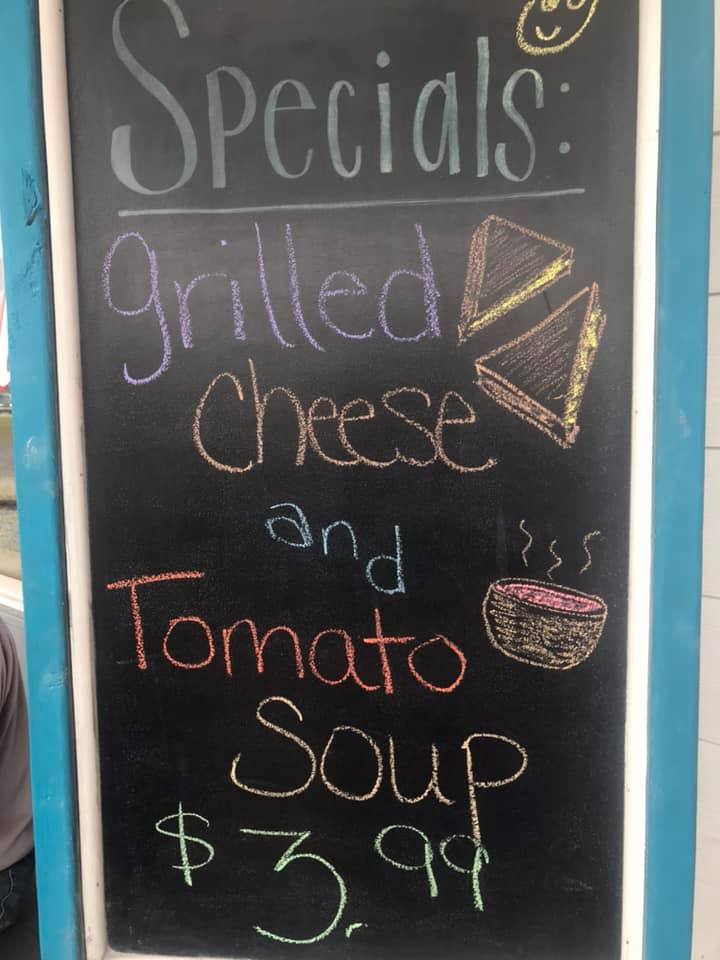 Specials:
grilled
cheese
and
Tomato
Soup
$3.99